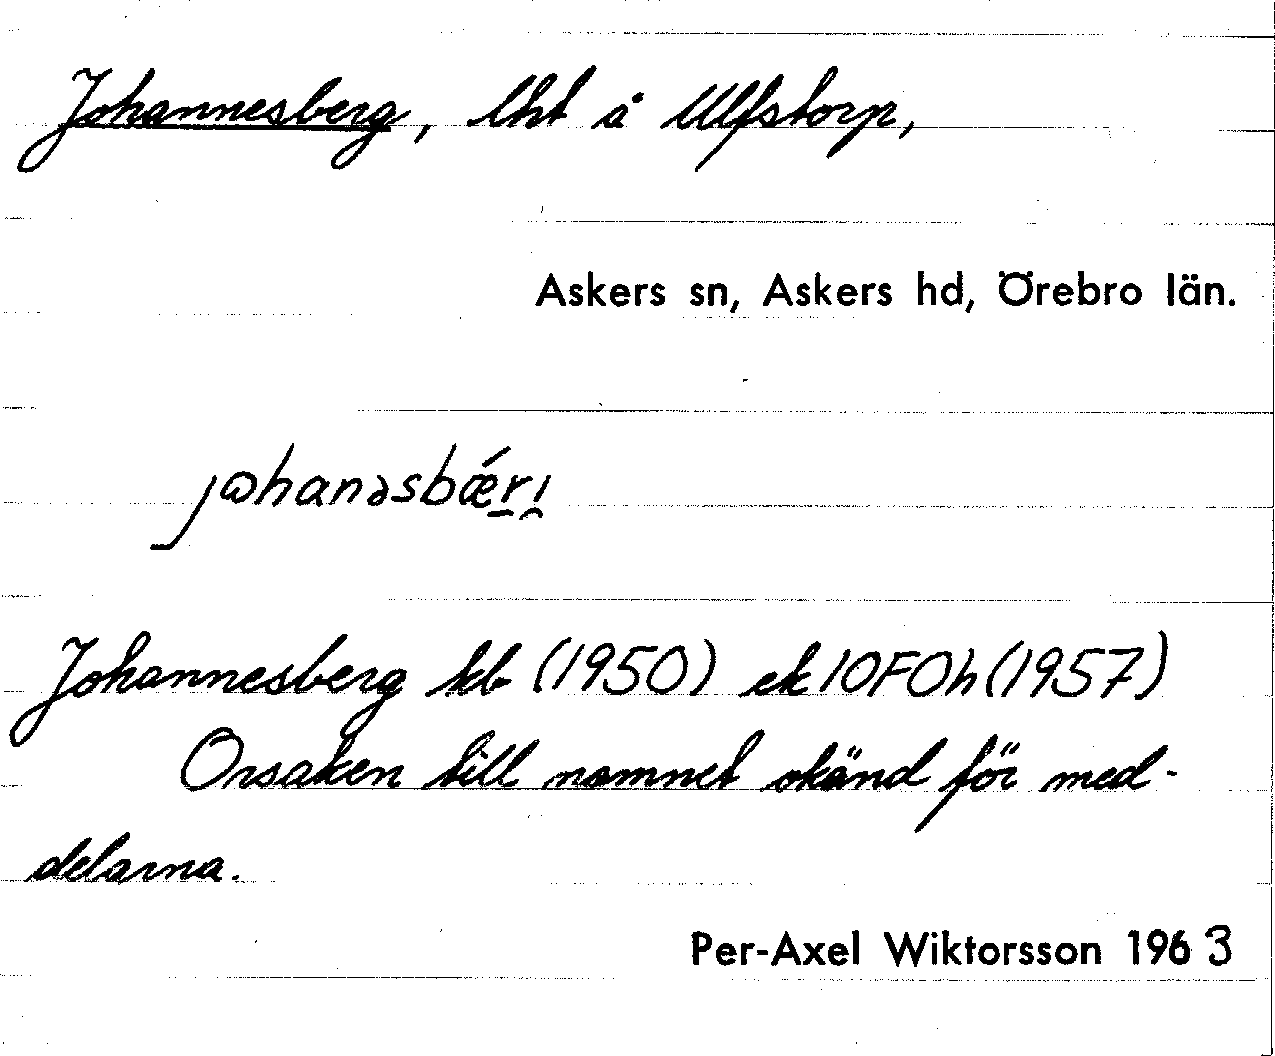 Johannesberg, lht å Ulfstorp,
Askers sn, Askers hd, Örebro län.
johanəsbǽri̯
Johannesberg kb (1950) ek 10F0h (1957)
Orsaken till namnet okänd för med-
delarna.
Per-Axel Wiktorsson 1963